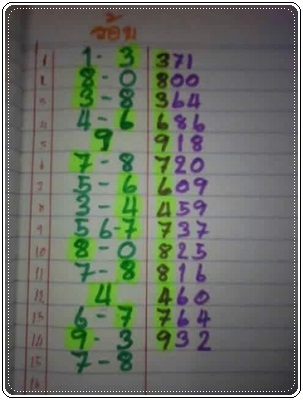 ร้อย
1 1 - 3 371
2 8 - 0 800
3 3 - 8 364
4 4 - 6 686
5 9 918
6 7 - 8 720
7 5 - 6 609
8 3 - 4 459
9 5 6-7 737
10 8 - 0 825
11 7 - 8 816
12 4 460
13 6 - 7 764
14 9 - 3 932
15 7 - 8
16